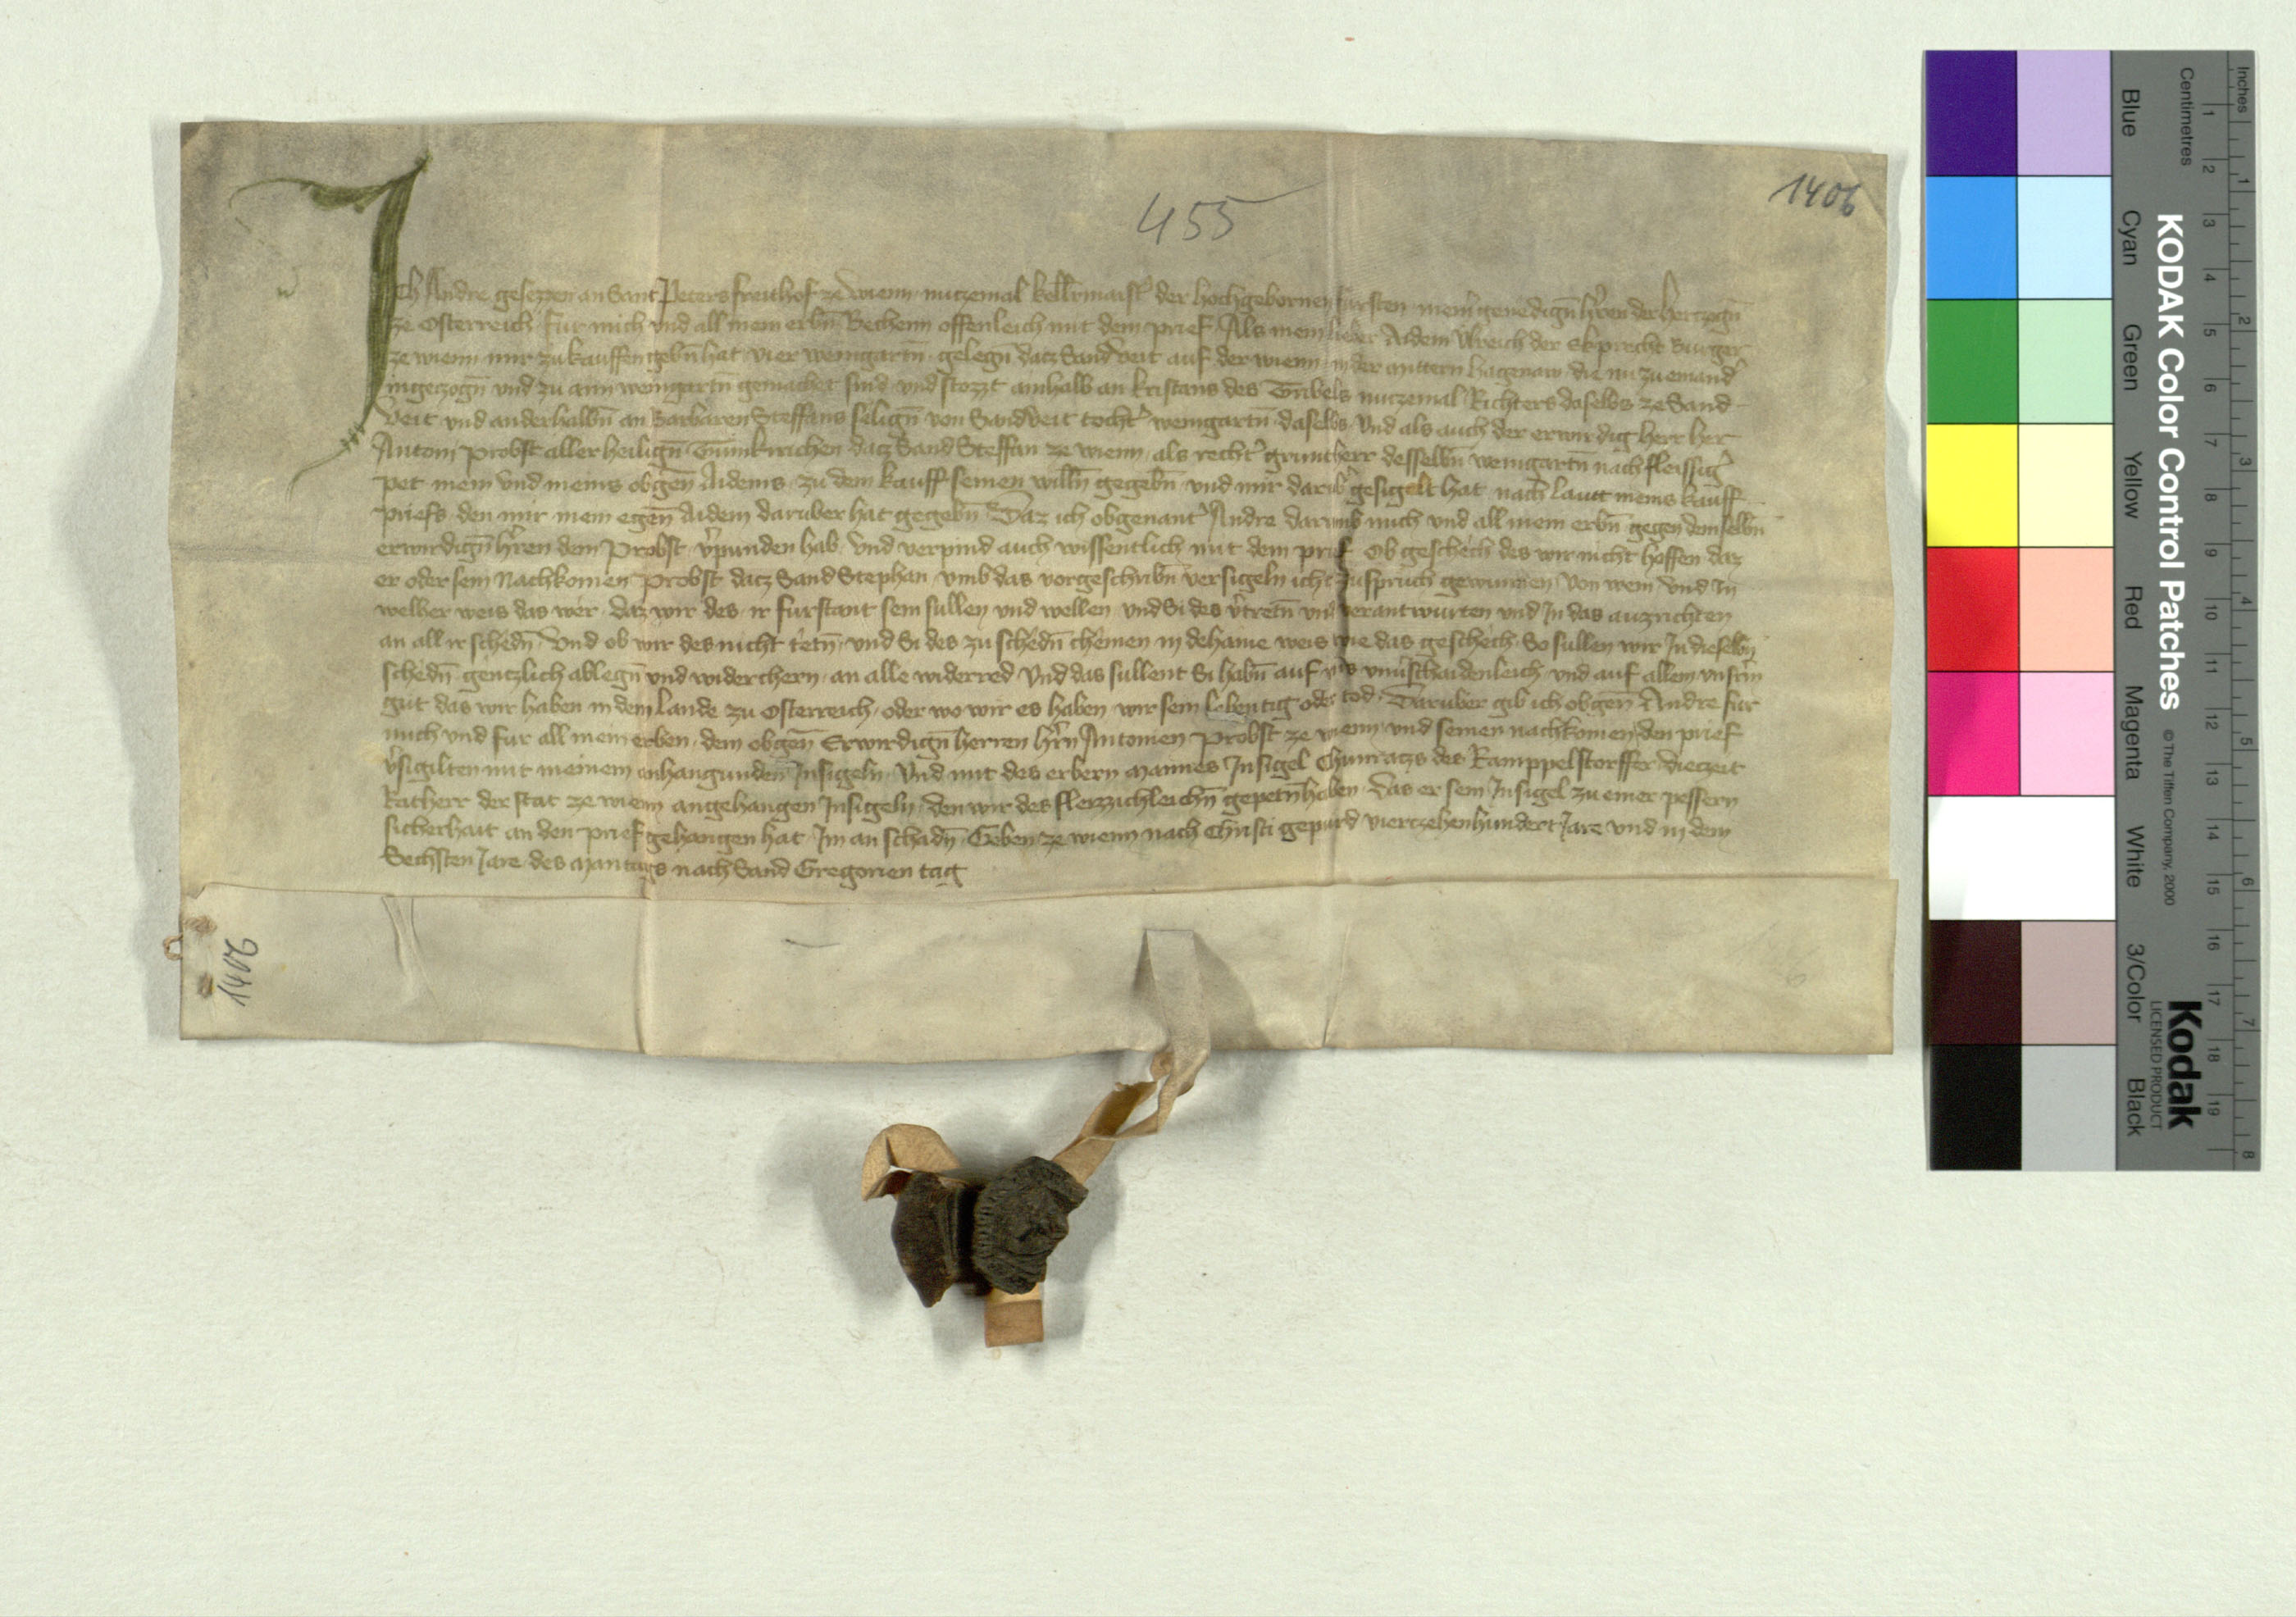 1406
455
Ich Andre gesezzen an Sant Peters freithof ze wienn nuczemal kellrmaistˀ der hochgebornen fursten meinˀ genedign̄ hˀren der herczogn̄
ze Osterreich fur mich vnd all mein erbn̄ Bechenn offenleich mit dem prief Als mein lieber Aidem Ulreich der Burger
ze wienn mir zu kauffen gebn̄ hat vier weingartn̄ gelegn̄ dacz Sand Veit auf der wienn in der mittern hagenaw die nu zu einandˀ
ingeczogn̄ vnd zu ainn weingartn̄ gemachet sind vnd stozzt ainhalb an kristans des nuczemal Richters daselbs ze Sand
Veit vnd anderhalbn̄ an Barbaren Steffans seligen̄ von Sand Veit tochtˀ weingartn̄ daselbs Vnd als auch der erwirdig herr her
Antoni Probst aller heilign̄ Tumkirichen dacz Sand Steffan ze wienn als rechtˀ gruntherr desselbn̄ weingartn̄ nach fleissigˀ
pet mein vnd meins obgen̄ Aidems zu dem kauff seinen willn̄ gegebn̄ vnd mir darubˀ gesigelt hat nach lautt meins kauff
priefs den mir mein egen̄ Aidem daruber hat gegebn̄ Daz ich obgenantˀ Andre darumb mich vnd all mein erbn̄ gegen demselbn̄
erwirdign̄ hˀren dem Probst vˀpunden hab vnd verpind auch wissentlich mit dem prief Ob geschech des wir nicht hoffen daz
er oder sein Nachkomen Probst dacz Sand Stephan vmb das vorgeschribn̄ versigeln icht zuspruch gewunnen von wem vnd In
welher weis das wer daz wir des ir furstant sein sullen vnd wellen vnd Si des vˀtretn̄ vnd verantwurten vnd In das auzrichten
an all ir schedn̄ Vnd ob wir des nicht tetn̄ vnd Si des zu schedn̄ chemen in dehaine weis wie das geschech So sullen wir In dieselbn̄
schedn̄ genczlich ablegn̄ vnd widerchern an alle widerred Vnd das sullent Si habn̄ auf vns vnuˀschaidenleich vnd auf allem vnsrˀm
gut das wir haben in dem lande zu Osterreich oder wo wir es haben wir sein lebentig oder tod Daruber gib ich obgen̄ Andre fur
mich vnd fur all mein erben dem obgen̄ Erwirdign̄ herren hˀrn Antonien Probst ze wienn vnd seinen nachkomen den prief
vˀsigilten mit meinem anhangunden Insigeln Vnd mit des erbern mannes Insigel Chunratzs des Ramppelstorffer dieczeit
Ratherr der stat ze wienn angehangen Insigeln den wir des fleizzichleichn̄ gepetn̄ haben das er sein Insigel zu einer pessern
sicherhait an den prief gehangen hat Im an schadn̄ Geben ze wienn nach Christi gepurd vierczehenhundert Jare vnd in dem
Sechsten Jare des Mantags nach Sand Gregorien tag
1406
KODAK Color Control Patches
© The Tiffen Company, 2000
Kodak
LICENSED PRODUCT
Blue Cyan Green Yellow Red Magenta White 3/Color Black
Centimetres
1 2 3 4 5 6 7 8 9 10 11 12 13 14 15 16 17 18 19
Inches
1 2 3 4 5 6 7 8